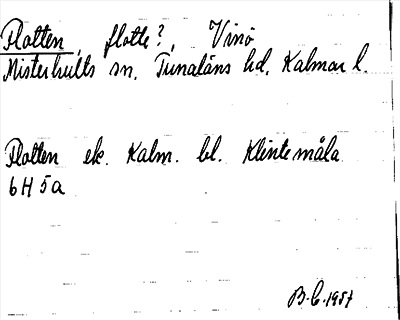 Flotten, flotte?, Vinö
Misterhults sn, Tunaläns hd, Kalmar l.
Flotten ek. Kalm. bl. Klintemåla
6H 5a
B.C. 1957